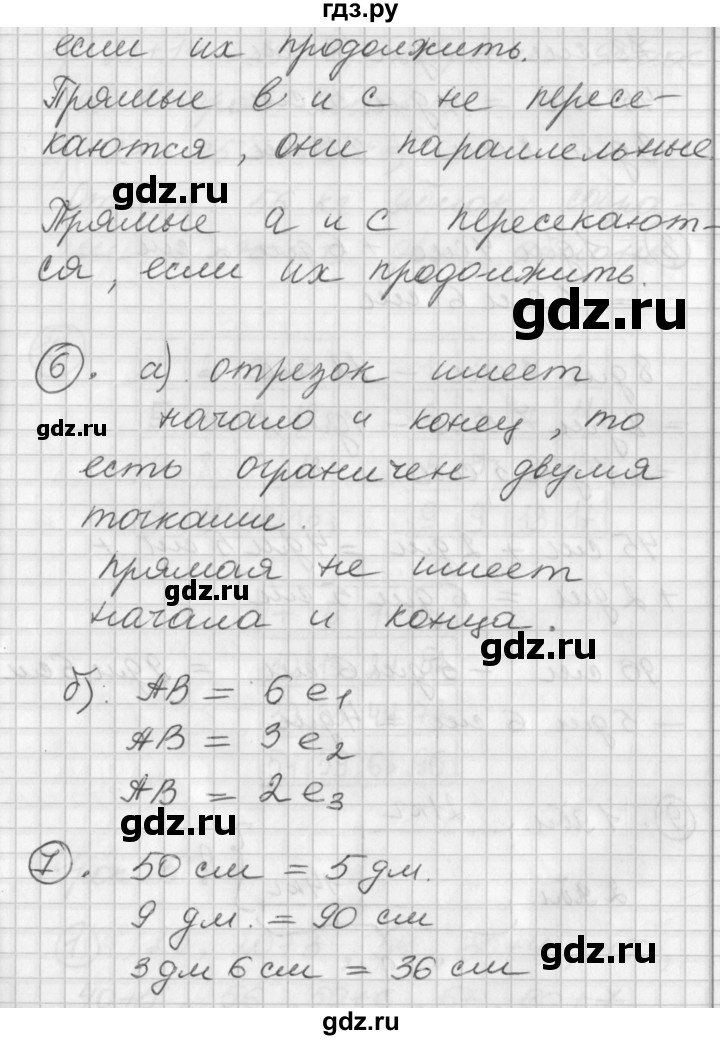 гдз.ру
если их продолжить.
Прямые в и с не пересе-
каются, они параллельные.
gdz.ru
Прямые а и с пересекают-
ся, если их продолжить.
gdz.ru
6. а) отрезок имеет
начало и конец, то
gdz.ru
есть ограничен двумя
точками.
прямая не имеет
gdz.ru
начала и конца.
gdz.ru
б). АВ = 6 е1
АВ = 3 е2
АВ = 2 е3
gdz.ru
7. 50 см = 5 дм.
9 дм. = 90 см
gdz.ru
3 дм 6 см = 36 см
gdz.ru